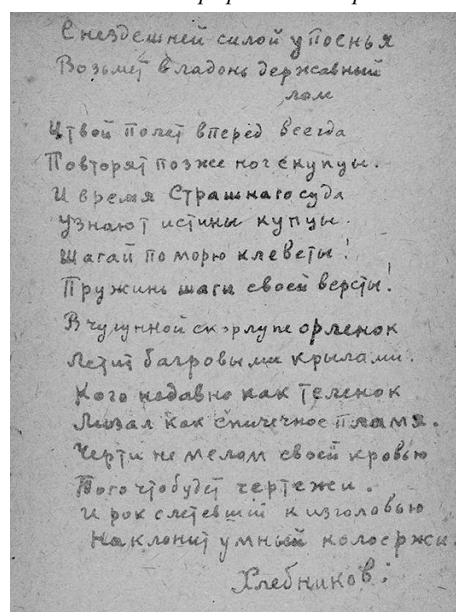 С нездешней силой упоенья
Возьмет в ладонь державный
лом
И твой полет вперед всегда
Повторят позже ног скупцы.
И время Страшнаго суда
Узнают истины купцы.
Шагай по морю клеветы!
Пружинь шаги своей версты!
В чугунной скорлупе орленок
Летит багровыми крылами.
Кого недавно как теленок
Лизал как спичечное пламя.
Черти не мелом своей кровью
Того что будет чертежи.
И рок слетевший к изголовью
Наклонит умный колос ржи.
Хлебников: